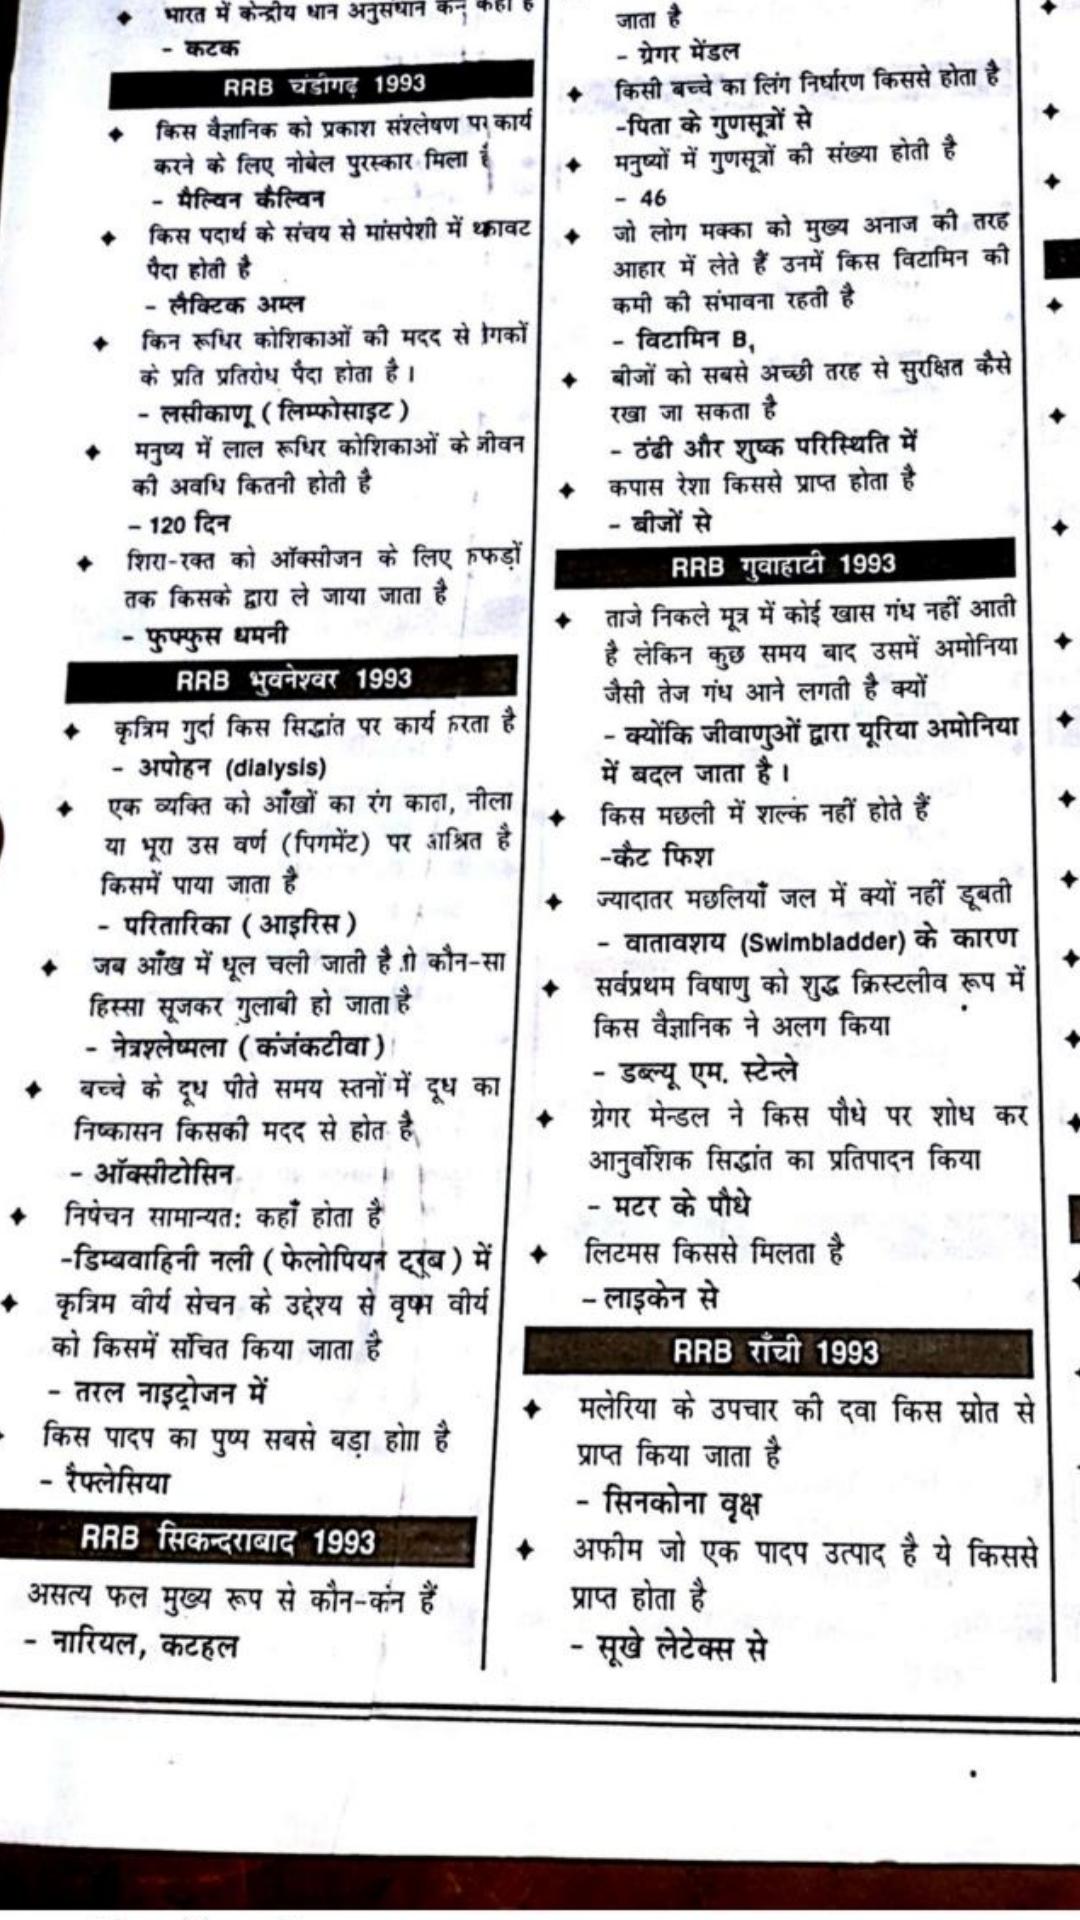 भारत में केन्द्रीय धान अनुसंधान कहाँ है
- कटक
RRB चंडीगढ़ 1993
किस वैज्ञानिक को प्रकाश संश्लेषण पर कार्य
करने के लिए नोबेल पुरस्कार मिला है
- मैल्विन कैल्विन
किस पदार्थ के संचय से मांसपेशी में थकावट
पैदा होती है
- लैक्टिक अम्ल
किन रूधिर कोशिकाओं की मदद से
के प्रति प्रतिरोध पैदा होता है।
- लसीकाणू ( लिम्फोसाइट )
मनुष्य में लाल रूधिर कोशिकाओं के जीवन
की अवधि कितनी होती है
- 120 दिन
शिरा-रक्त को ऑक्सीजन के लिए फफड़ों
तक किसके द्वारा ले जाया जाता है
- फुफ्फुस धमनी
RRB भुवनेश्वर 1993
कृत्रिम गुर्दा किस सिद्धांत पर कार्य करता है
- अपोहन (dialysis)
एक व्यक्ति को आँखों का रंग काला, नीला
या भूरा उस वर्ण (पिगमेंट) पर आश्रित है
किसमें पाया जाता है
- परितारिका ( आइरिस )
जब आँख में धूल चली जाती है तो कौन-सा
हिस्सा सूजकर गुलाबी हो जाता है
- नेत्रश्लेष्मला ( कंजंकटीवा )
बच्चे के दूध पीते समय स्तनों में दूध का
निष्कासन किसकी मदद से होत है
- ऑक्सीटोसिन
निषेचन सामान्यत: कहाँ होता है
-डिम्बवाहिनी नली ( फेलोपियन ट्यूब ) में
कृत्रिम वीर्य सेचन के उद्देश्य से वृषभ वीर्य
को किसमें संचित किया जाता है
- तरल नाइट्रोजन में
किस पादप का पुष्प सबसे बड़ा होता है
- रैफ्लेसिया
RRB सिकन्दराबाद 1993
असत्य फल मुख्य रूप से कौन-कौन हैं
- नारियल, कटहल
जाता है
- ग्रेगर मेंडल
किसी बच्चे का लिंग निर्धारण किससे होता है
-पिता के गुणसूत्रों से
मनुष्यों में गुणसूत्रों की संख्या होती है
- 46
जो लोग मक्का को मुख्य अनाज की तरह
आहार में लेते हैं उनमें किस विटामिन की
कमी की संभावना रहती है
- विटामिन B₁
बीजों को सबसे अच्छी तरह से सुरक्षित कैसे
रखा जा सकता है
- ठंढी और शुष्क परिस्थिति में
कपास रेशा किससे प्राप्त होता है
- बीजों से
RRB गुवाहाटी 1993
ताजे निकले मूत्र में कोई खास गंध नहीं आती
है लेकिन कुछ समय बाद उसमें अमोनिया
जैसी तेज गंध आने लगती है क्यों
- क्योंकि जीवाणुओं द्वारा यूरिया अमोनिया
में बदल जाता है।
किस मछली में शल्क नहीं होते हैं
-कैट फिश
ज्यादातर मछलियाँ जल में क्यों नहीं डूबती
- वातावशय (Swimbladder) के कारण
सर्वप्रथम विषाणु को शुद्ध क्रिस्टलीव रूप में
किस वैज्ञानिक ने अलग किया
- डब्ल्यू एम. स्टेन्ले
ग्रेगर मेन्डल ने किस पौधे पर शोध कर
आनुवंशिक सिद्धांत का प्रतिपादन किया
- मटर के पौधे
लिटमस किससे मिलता है
- लाइकेन से
RRB राँची 1993
मलेरिया के उपचार की दवा किस स्रोत से
प्राप्त किया जाता है
- सिनकोना वृक्ष
अफीम जो एक पादप उत्पाद है ये किससे
प्राप्त होता है
- सूखे लेटेक्स से